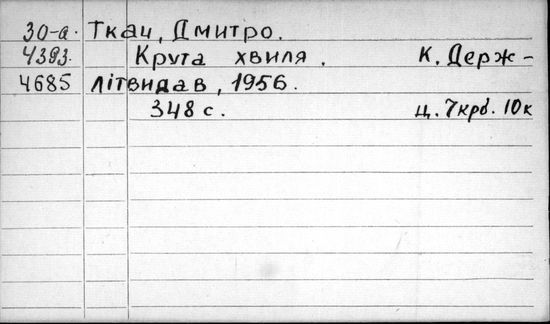 30-а. Ткач, Дмитро.
4393. Крута хвиля. К. Держ-
4685 літвидав, 1956.
348 с. ц. 7крб. 10к